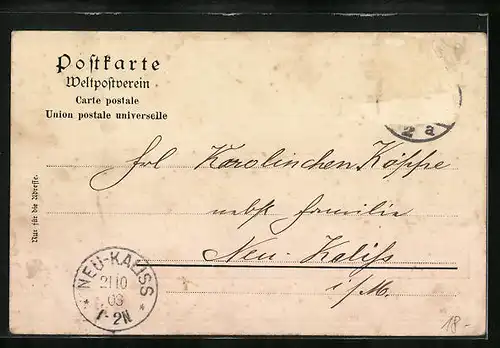 Postkarte
Weltpostverein
Carte postale
Union postale universelle
2 a
Nur für die Adresse.
Frl Karolinchen Köppe
nebst Familie
Neu-Kaliß
i/M.
NEU-KALISS
* 21 10 *
03
1-2N
18.-